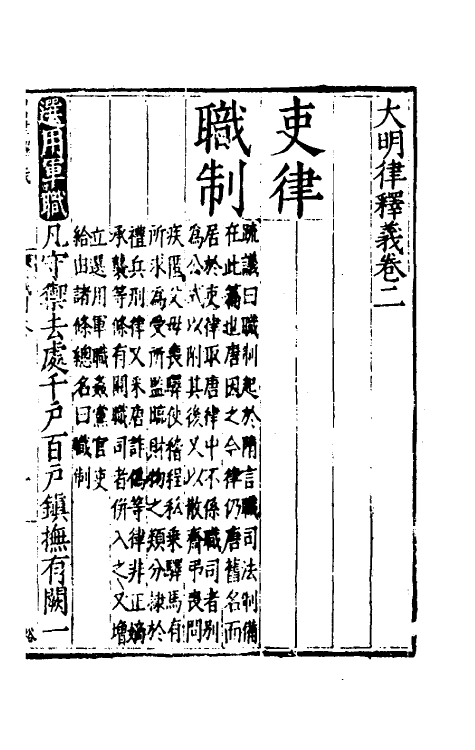 大明律釋義卷二
吏律
職制
疏議曰職制起於隋言職司法制備
在此篇也唐因之今律仍唐舊名而
居於吏律取唐律中不係職司者別
為公式以附其後又以散齋弔喪問
疾匿父母喪驛使稽程私乘驛馬有
所求為受所監臨財物之類分隷於
禮兵刑律又采唐詐偽等律非正嫡
承襲等條有關職司者併入之又增
立選用軍職姦黨官吏
給由諸條總名曰職制
選用軍職
凡守禦去處千戶百戶鎮撫有闕一